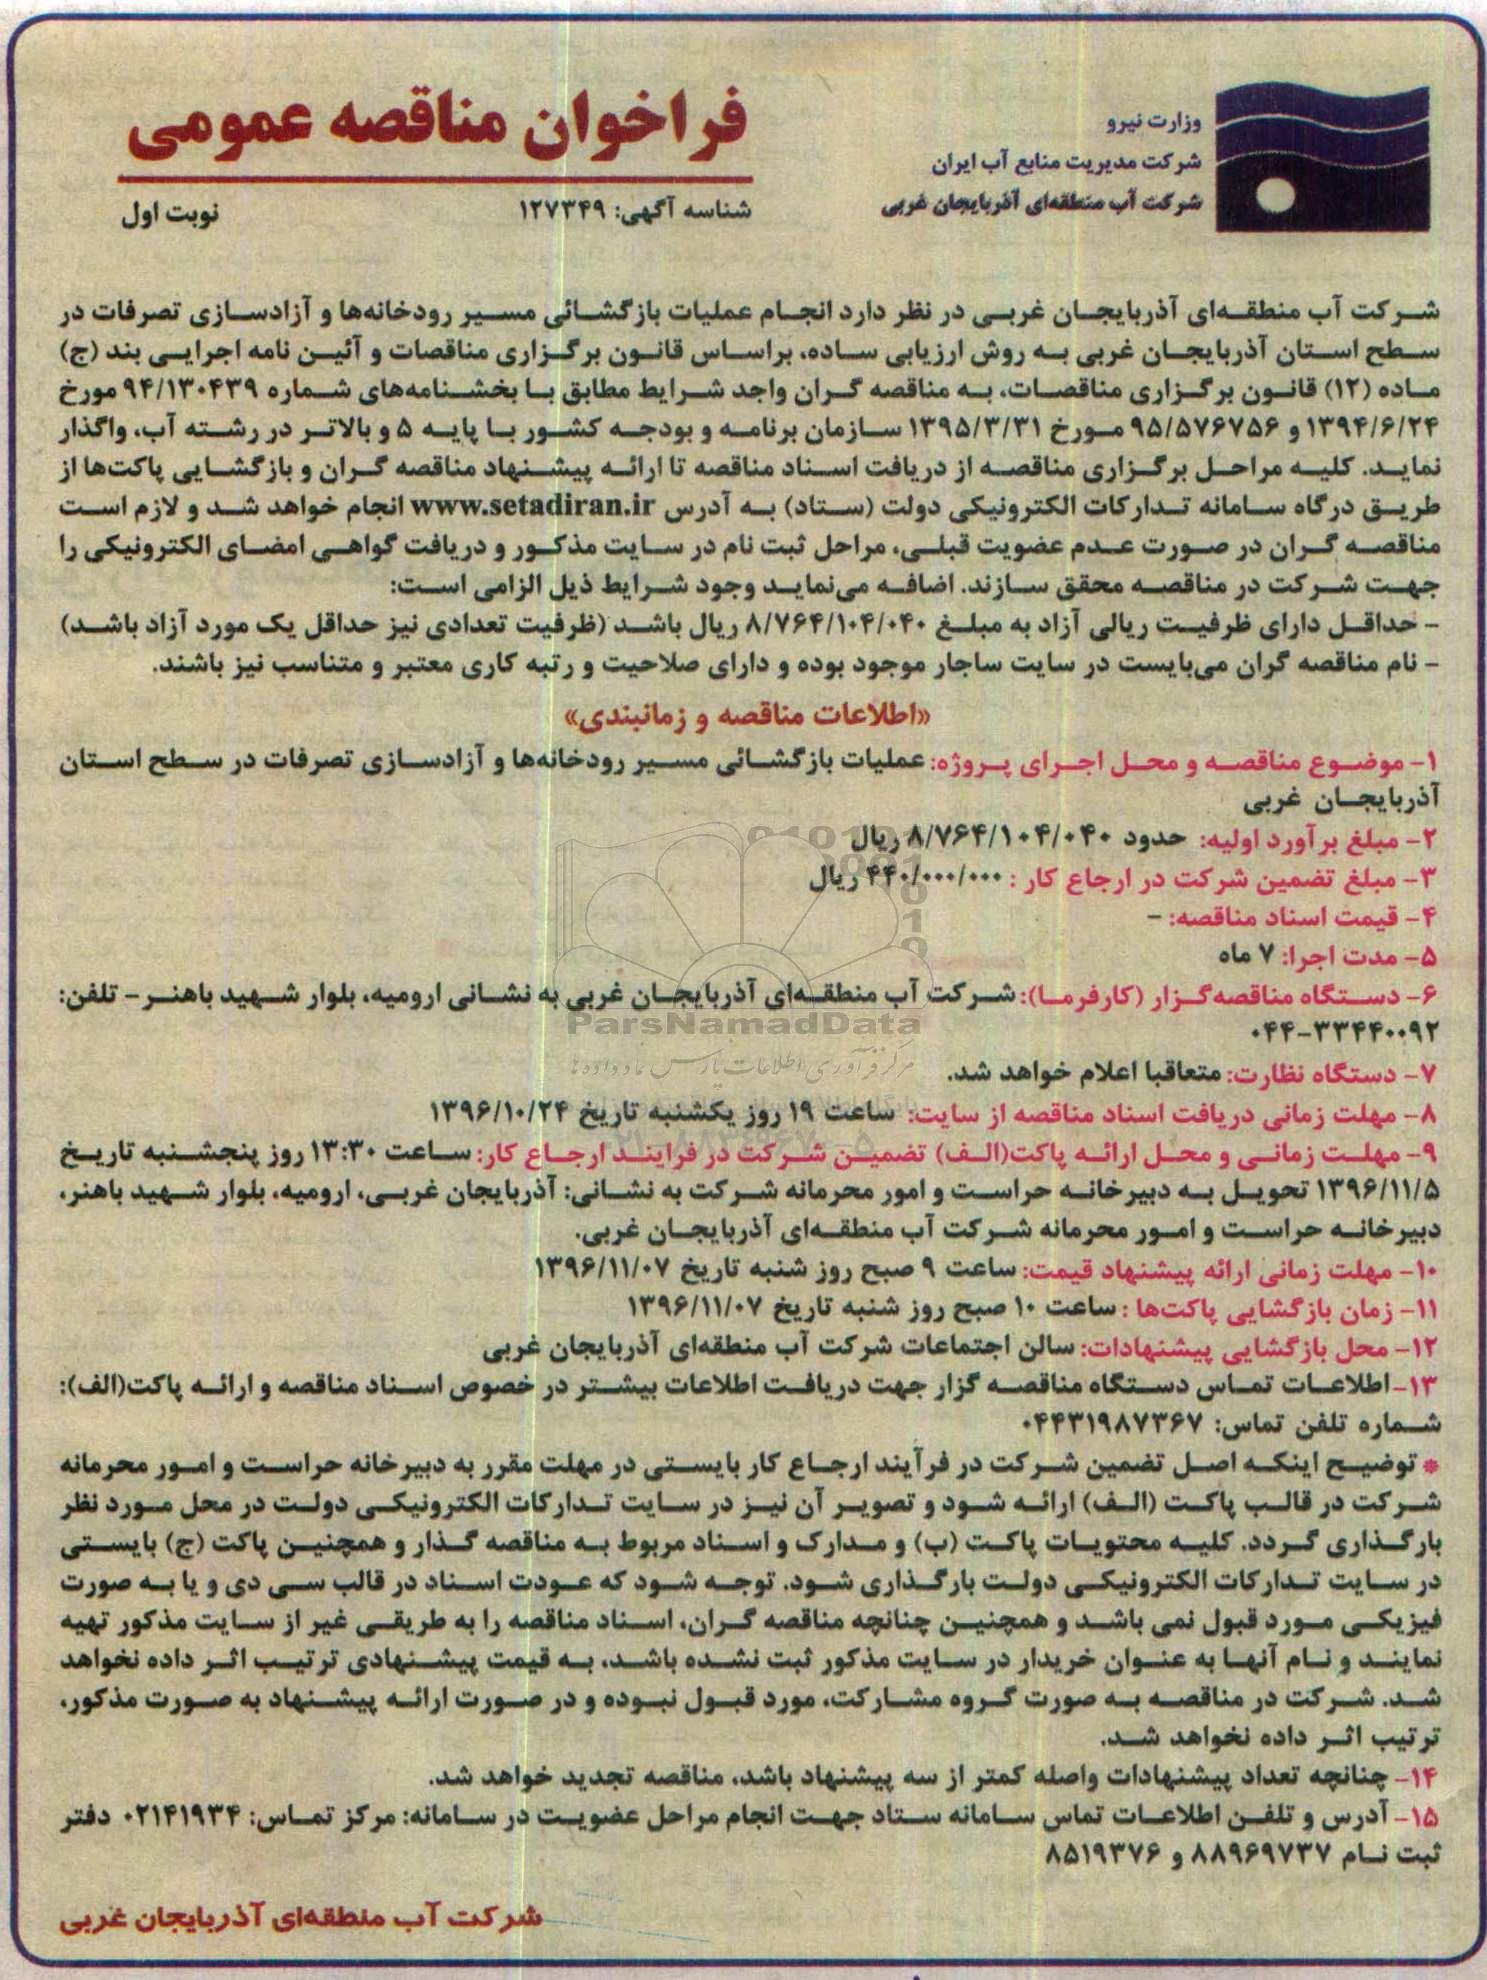 وزارت نیرو
شرکت مدیریت منابع آب ایران
شرکت آب منطقه‌ای آذربایجان غربی
فراخوان مناقصه عمومی
شناسه آگهی: ۱۲۷۳۴۹
نوبت اول
شرکت آب منطقه‌ای آذربایجان غربی در نظر دارد انجام عملیات بازگشائی مسیر رودخانه‌ها و آزادسازی تصرفات در
سطح استان آذربایجان غربی به روش ارزیابی ساده، براساس قانون برگزاری مناقصات و آئین نامه اجرایی بند (ج)
ماده (۱۲) قانون برگزاری مناقصات، به مناقصه گران واجد شرایط مطابق با بخشنامه‌های شماره ۹۴/۱۳۰۴۳۹ مورخ
۱۳۹۴/۶/۲۴ و ۹۵/۵۷۶۷۵۶ مورخ ۱۳۹۵/۳/۳۱ سازمان برنامه و بودجه کشور با پایه ۵ و بالاتر در رشته آب، واگذار
نماید. کلیه مراحل برگزاری مناقصه از دریافت اسناد مناقصه تا ارائه پیشنهاد مناقصه گران و بازگشایی پاکت‌ها از
طریق درگاه سامانه تدارکات الکترونیکی دولت (ستاد) به آدرس www.setadiran.ir انجام خواهد شد و لازم است
مناقصه گران در صورت عدم عضویت قبلی، مراحل ثبت نام در سایت مذکور و دریافت گواهی امضای الکترونیکی را
جهت شرکت در مناقصه محقق سازند. اضافه می‌نماید وجود شرایط ذیل الزامی است:
- حداقل دارای ظرفیت ریالی آزاد به مبلغ ۸/۷۶۴/۱۰۴/۰۴۰ ریال باشد (ظرفیت تعدادی نیز حداقل یک مورد آزاد باشد)
- نام مناقصه گران می‌بایست در سایت ساجار موجود بوده و دارای صلاحیت و رتبه کاری معتبر و متناسب نیز باشند.
«اطلاعات مناقصه و زمانبندی»
۱- موضوع مناقصه و محل اجرای پروژه: عملیات بازگشائی مسیر رودخانه‌ها و آزادسازی تصرفات در سطح استان
آذربایجان غربی
۲- مبلغ برآورد اولیه: حدود ۸/۷۶۴/۱۰۴/۰۴۰ ریال
۳- مبلغ تضمین شرکت در ارجاع کار : ۴۴۰/۰۰۰/۰۰۰ ریال
۴- قیمت اسناد مناقصه: -
۵- مدت اجرا: ۷ ماه
۶- دستگاه مناقصه‌گزار (کارفرما): شرکت آب منطقه‌ای آذربایجان غربی به نشانی ارومیه، بلوار شهید باهنر - تلفن:
۰۴۴-۳۳۴۴۰۰۹۲
ParsNamadData
مرکز فرآوری اطلاعات پارس نماد داده ها
۷- دستگاه نظارت: متعاقبا اعلام خواهد شد.
۸- مهلت زمانی دریافت اسناد مناقصه از سایت: ساعت ۱۹ روز یکشنبه تاریخ ۱۳۹۶/۱۰/۲۴
۹- مهلت زمانی و محل ارائه پاکت(الف) تضمین شرکت در فرایند ارجاع کار: ساعت ۱۳:۳۰ روز پنجشنبه تاریخ
۱۳۹۶/۱۱/۵ تحویل به دبیرخانه حراست و امور محرمانه شرکت به نشانی: آذربایجان غربی، ارومیه، بلوار شهید باهنر،
دبیرخانه حراست و امور محرمانه شرکت آب منطقه‌ای آذربایجان غربی.
۱۰- مهلت زمانی ارائه پیشنهاد قیمت: ساعت ۹ صبح روز شنبه تاریخ ۱۳۹۶/۱۱/۰۷
۱۱- زمان بازگشایی پاکت‌ها : ساعت ۱۰ صبح روز شنبه تاریخ ۱۳۹۶/۱۱/۰۷
۱۲- محل بازگشایی پیشنهادات: سالن اجتماعات شرکت آب منطقه‌ای آذربایجان غربی
۱۳- اطلاعات تماس دستگاه مناقصه گزار جهت دریافت اطلاعات بیشتر در خصوص اسناد مناقصه و ارائه پاکت(الف):
شماره تلفن تماس: ۰۴۴۳۱۹۸۷۳۶۷
* توضیح اینکه اصل تضمین شرکت در فرآیند ارجاع کار بایستی در مهلت مقرر به دبیرخانه حراست و امور محرمانه
شرکت در قالب پاکت (الف) ارائه شود و تصویر آن نیز در سایت تدارکات الکترونیکی دولت در محل مورد نظر
بارگذاری گردد. کلیه محتویات پاکت (ب) و مدارک و اسناد مربوط به مناقصه گذار و همچنین پاکت (ج) بایستی
در سایت تدارکات الکترونیکی دولت بارگذاری شود. توجه شود که عودت اسناد در قالب سی دی و یا به صورت
فیزیکی مورد قبول نمی باشد و همچنین چنانچه مناقصه گران، اسناد مناقصه را به طریقی غیر از سایت مذکور تهیه
نمایند و نام آنها به عنوان خریدار در سایت مذکور ثبت نشده باشد، به قیمت پیشنهادی ترتیب اثر داده نخواهد
شد. شرکت در مناقصه به صورت گروه مشارکت، مورد قبول نبوده و در صورت ارائه پیشنهاد به صورت مذکور،
ترتیب اثر داده نخواهد شد.
۱۴- چنانچه تعداد پیشنهادات واصله کمتر از سه پیشنهاد باشد، مناقصه تجدید خواهد شد.
۱۵- آدرس و تلفن اطلاعات تماس سامانه ستاد جهت انجام مراحل عضویت در سامانه: مرکز تماس: ۰۲۱۴۱۹۳۴ دفتر
ثبت نام ۸۸۹۶۹۷۳۷ و ۸۵۱۹۳۷۶
شرکت آب منطقه‌ای آذربایجان غربی